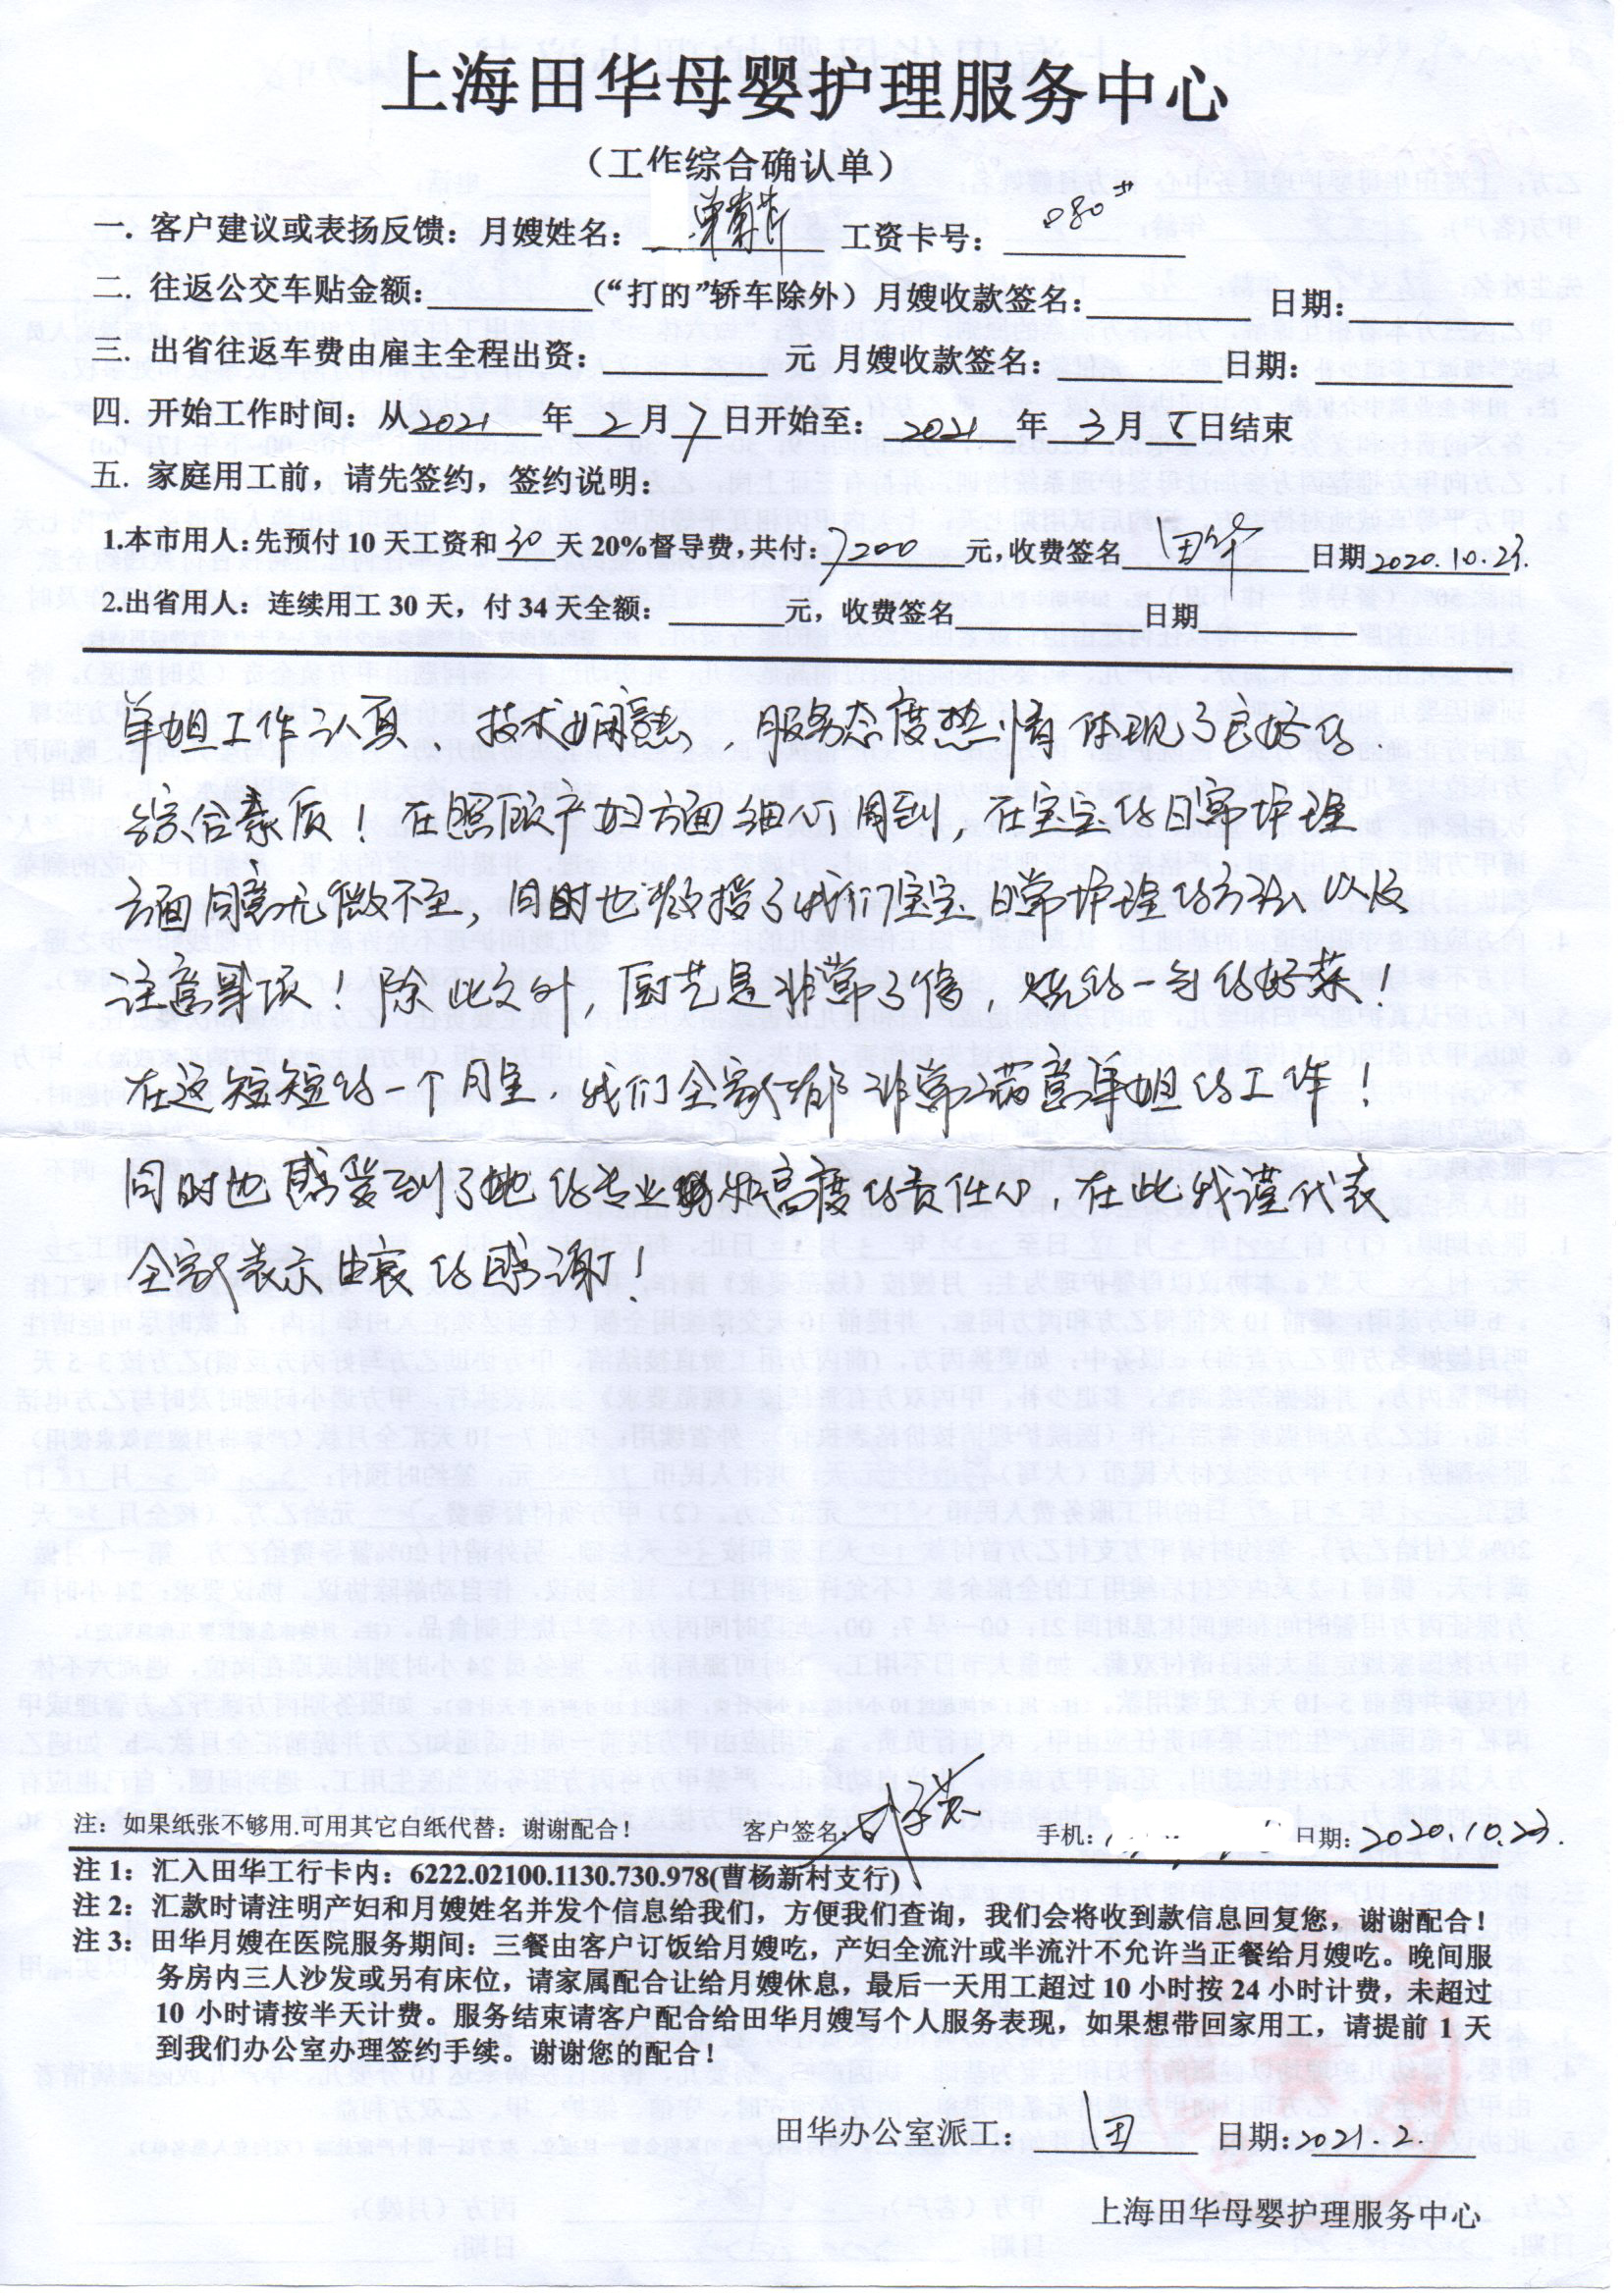 上海田华母婴护理服务中心
（工作综合确认单）
一. 客户建议或表扬反馈：月嫂姓名： 单 工资卡号：080#
二. 往返公交车贴金额： （“打的”轿车除外）月嫂收款签名： 日期：
三. 出省往返车费由雇主全程出资： 元 月嫂收款签名： 日期：
四. 开始工作时间：从2021年2月7日开始至：2021年3月 日结束
五. 家庭用工前，请先签约，签约说明：
1.本市用人：先预付10天工资和30天20%督导费，共付：7200元，收费签名 田华 日期2020.10.23.
2.出省用人：连续用工30天，付34天全额： 元，收费签名 日期
单姐工作认真、技术娴熟 服务态度热情 体现了良好的
综合素质！在照顾产妇方面细心周到，在宝宝的日常护理
方面同意无微不至，同时也教授了我们宝宝日常护理的方法以及
注意事项！除此之外，厨艺是非常了得，烧的一台的好菜！
在这短短的一个月里，我们全家人都非常满意单姐的工作！
同时也感受到了她的专业和高度的责任心，在此我谨代表
全家表示由衷的感谢！
注：如果纸张不够用.可用其它白纸代替：谢谢配合！ 客户签名： 手机： 日期：2020.10.23.
注 1：汇入田华工行卡内：6222.02100.1130.730.978(曹杨新村支行)
注 2：汇款时请注明产妇和月嫂姓名并发个信息给我们，方便我们查询，我们会将收到款信息回复您，谢谢配合！
注 3：田华月嫂在医院服务期间：三餐由客户订饭给月嫂吃，产妇全流汁或半流汁不允许当正餐给月嫂吃。晚间服
务房内三人沙发或另有床位，请家属配合让给月嫂休息，最后一天用工超过 10 小时按 24 小时计费，未超过
10 小时请按半天计费。服务结束请客户配合给田华月嫂写个人服务表现，如果想带回家用工，请提前 1 天
到我们办公室办理签约手续。谢谢您的配合！
田华办公室派工： 田 日期：2021.2.
上海田华母婴护理服务中心